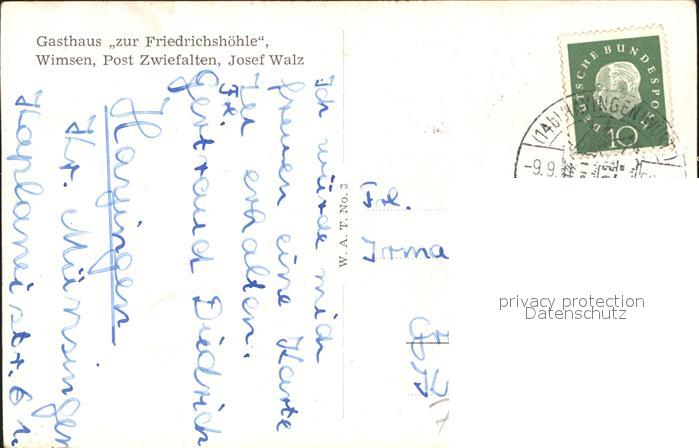 Gasthaus „zur Friedrichshöhle“,
Wimsen, Post Zwiefalten, Josef Walz
Ich würde mich
freuen eine Karte
zu erhalten.
Frl.
Gertraud Diedrich
Hayingen
Kr. Münsingen
Kaplaneistr. 6
W. A. T. No. 3
DEUTSCHE BUNDESPOST
10
(14b) HAYINGEN
-9.9.
Frl.
Irma
privacy protection
Datenschutz